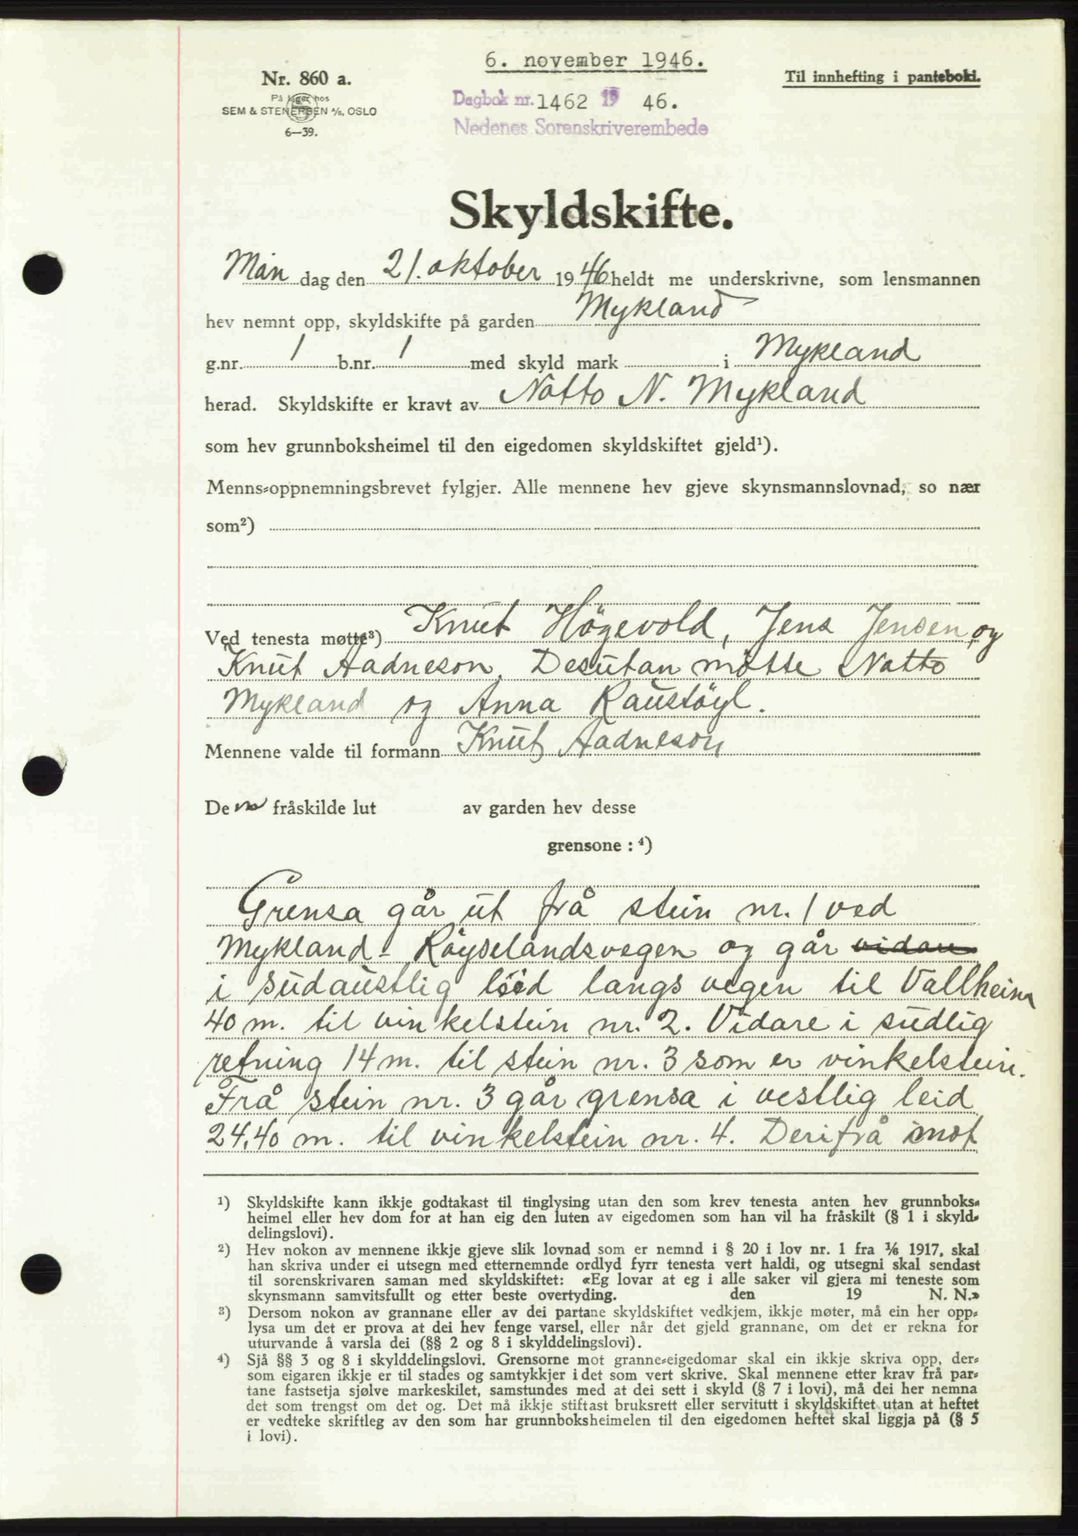 6. november 1946.
Nr. 860 a.
Til innhefting i pantebok.
På lager hos
SEM & STENERSEN A/S, OSLO
6—39.
Dagbok nr. 1462 19 46.
Nedenes Sorenskriverembede
Skyldskifte.
Mån dag den 21. oktober 1946 heldt me underskrivne, som lensmannen
hev nemnt opp, skyldskifte på garden Mykland
g.nr. 1 b.nr. 1 med skyld mark i Mykland
herad. Skyldskifte er kravt av Notto N. Mykland
som hev grunnboksheimel til den eigedomen skyldskiftet gjeld¹).
Menns-oppnemningsbrevet fylgjer. Alle mennene hev gjeve skynsmannslovnad, so nær
som²)
Ved tenesta møtte³) Knut Högevold, Jens Jensen og
Knut Aadneson. Desutan møtte Notto
Mykland og Anna Raustöyl.
Mennene valde til formann Knut Aadneson
De fråskilde lut av garden hev desse
grensone : ⁴)
Grensa går ut frå stein nr. 1 ved
Mykland-Röyselandsvegen og går vidare
i sudaustlig leid langs vegen til Vallheim
40 m. til vinkelstein nr. 2. Vidare i sudlig
retning 14 m. til stein nr. 3 som er vinkelstein.
Frå stein nr. 3 går grensa i vestlig leid
24,40 m. til vinkelstein nr. 4. Derifrå imot
¹) Skyldskifte kann ikkje godtakast til tinglysing utan den som krev tenesta anten hev grunnboks-
heimel eller hev dom for at han eig den luten av eigedomen som han vil ha fråskilt (§ 1 i skyld-
delingslovi).
²) Hev nokon av mennene ikkje gjeve slik lovnad som er nemnd i § 20 i lov nr. 1 fra ⅙ 1917, skal
han skriva under ei utsegn med etternemnde ordlyd fyrr tenesta vert haldi, og utsegni skal sendast
til sorenskrivaren saman med skyldskiftet: «Eg lovar at eg i alle saker vil gjera mi teneste som
skynsmann samvitsfullt og etter beste overtyding. den 19 N. N.»
³) Dersom nokon av grannane eller av dei partane skyldskiftet vedkjem, ikkje møter, må ein her opp-
lysa um det er prova at dei hev fenge varsel, eller når det gjeld grannane, om det er rekna for
uturvande å varsla dei (§§ 2 og 8 i skylddelingslovi).
⁴) Sjå §§ 3 og 8 i skylddelingslovi. Grensorne mot granne-eigedomar skal ein ikkje skriva opp, der-
som eigaren ikkje er til stades og samtykkjer i det som vert skrive. Skal mennene etter krav frå par-
tane fastsetja sjølve markeskilet, samstundes med at dei sett i skyld (§ 7 i lovi), må dei her nemna
det som trengst om det og. Det må ikkje stiftast bruksrett eller servitutt i skyldskiftet utan at heftet
er vedteke skriftleg av den som har grunnboksheimelen til den eigedomen heftet skal liggja på (§ 5
i lovi).